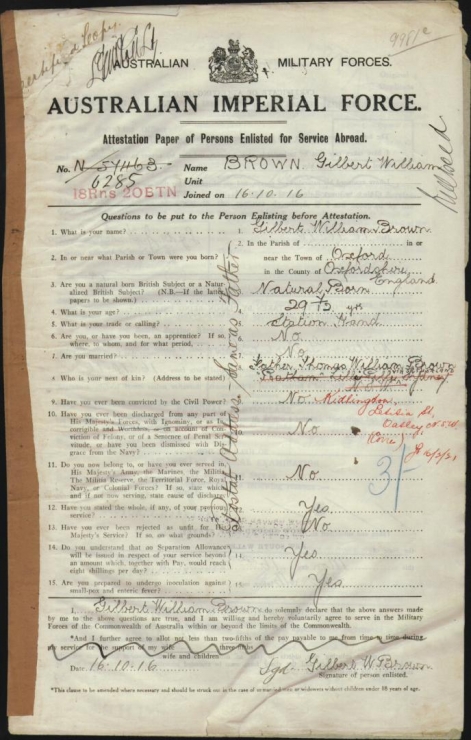 9981/c
AUSTRALIAN MILITARY FORCES.
AUSTRALIAN IMPERIAL FORCE.
Attestation Paper of Persons Enlisted for Service Abroad.
No. N 51463 Name BROWN Gilbert William
6285 Unit
18Rns 20BTN Joined on 16.10.16
Questions to be put to the Person Enlisting before Attestation.
1. What is your name? 1. Gilbert William Brown
2. In or near what Parish or Town were you born? 2. In the Parish of in or
near the Town of Oxford
in the County of Oxfordshire
England
3. Are you a natural born British Subject or a Natur-
alized British Subject? (N.B.—If the latter,
papers to be shown.) Natural Born
4. What is your age? 29
5. What is your trade or calling? Station Hand
6. Are you, or have you been, an apprentice? If so,
where, to whom, and for what period. No.
7. Are you married? No.
8. Who is your next of kin? (Address to be stated) Father Thomas William Brown
9. Have you ever been convicted by the Civil Power? No.
10. Have you ever been discharged from any part of
His Majesty's Forces, with Ignominy, or as In-
corrigible and Worthless, or on account of Con-
viction of Felony, or of a Sentence of Penal Ser-
vitude, or have you been dismissed with Dis-
grace from the Navy? 10. No
11. Do you now belong to, or have you ever served in,
His Majesty's Army, the Marines, the Militia,
The Militia Reserve, the Territorial Force, Royal
Navy, or Colonial Forces? If so, state which,
and if not now serving, state cause of discharge No
12. Have you stated the whole, if any, of your previous
service? Yes
13. Have you ever been rejected as unfit for His
Majesty's Service? If so, on what grounds? No
14. Do you understand that no Separation Allowance
will be issued in respect of your service beyond
an amount which, together with Pay, would reach
eight shillings per day? 14. Yes
15. Are you prepared to undergo inoculation against
small-pox and enteric fever? 15. Yes
3/-
Postal Address
Father
I, Gilbert William Brown do solemnly declare that the above answers made
by me to the above questions are true, and I am willing and hereby voluntarily agree to serve in the Military
Forces of the Commonwealth of Australia within or beyond the limits of the Commonwealth.
*And I further agree to allot not less than two-fifths of the pay payable to me from time to time during
my service for the support of my wife
wife and children
Date 16.10.16 Sgd. Gilbert W Brown
Signature of person enlisted.